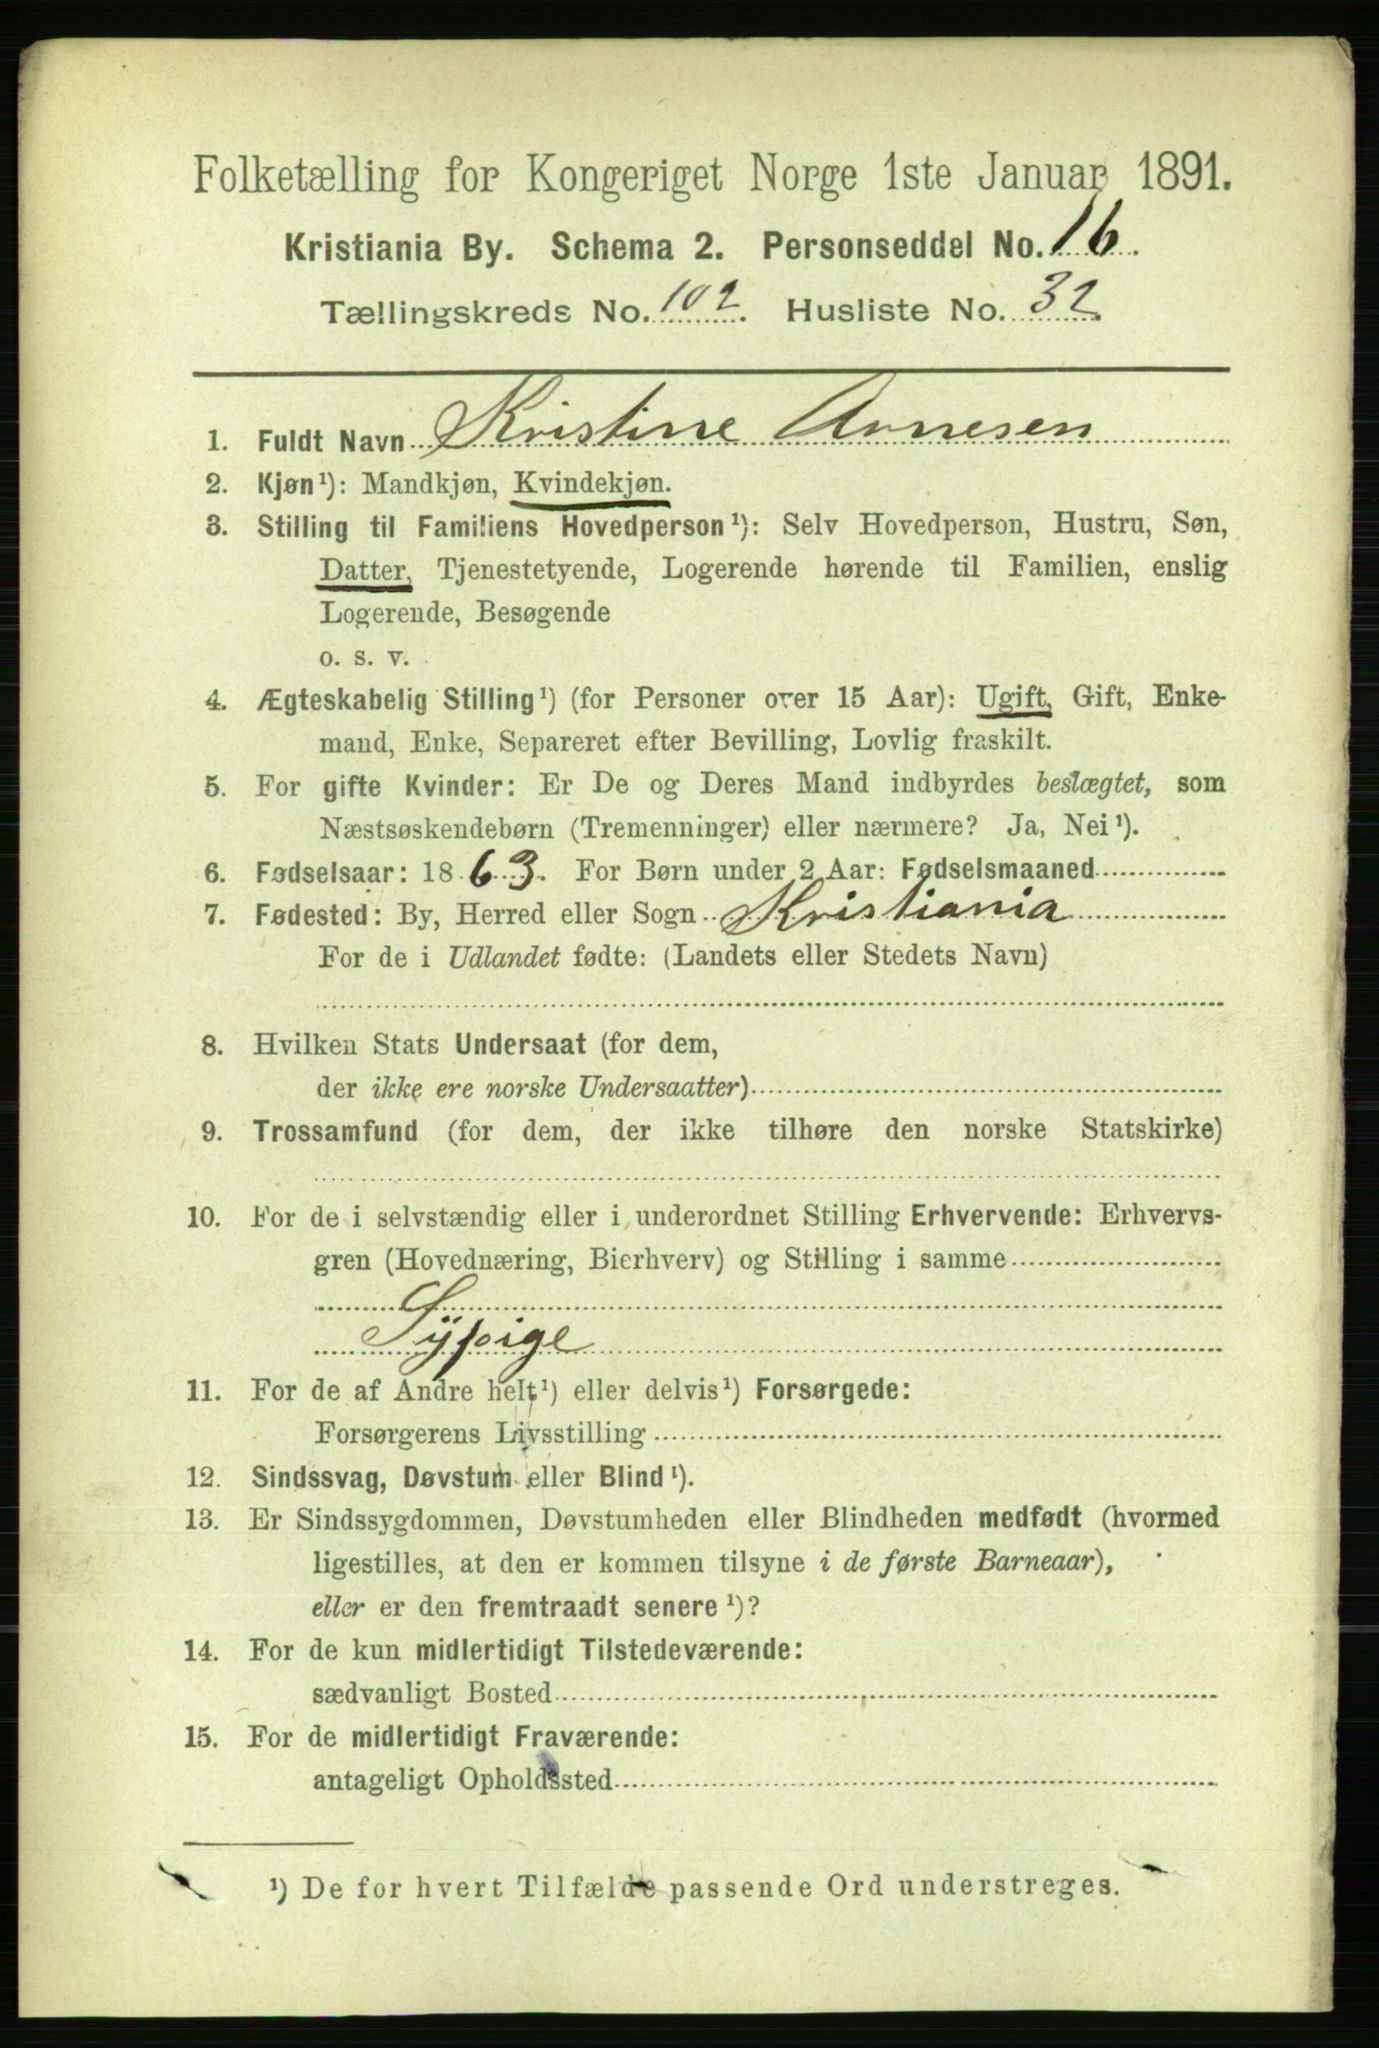 Folketælling for Kongeriget Norge 1ste Januar 1891.
Kristiania By. Schema 2. Personseddel No. 16.
Tællingskreds No. 102. Husliste No. 32.
1. Fuldt Navn Kristine Arnesen
2. Kjøn¹): Mandkjøn, Kvindekjøn.
3. Stilling til Familiens Hovedperson¹): Selv Hovedperson, Hustru, Søn,
Datter, Tjenestetyende, Logerende hørende til Familien, enslig
Logerende, Besøgende
o. s. v.
4. Ægteskabelig Stilling¹) (for Personer over 15 Aar): Ugift, Gift, Enke-
mand, Enke, Separeret efter Bevilling, Lovlig fraskilt.
5. For gifte Kvinder: Er De og Deres Mand indbyrdes beslægtet, som
Næstsøskendebørn (Tremenninger) eller nærmere? Ja, Nei¹).
6. Fødselsaar: 1863. For Børn under 2 Aar: Fødselsmaaned
7. Fødested: By, Herred eller Sogn Kristiania
For de i Udlandet fødte: (Landets eller Stedets Navn)
8. Hvilken Stats Undersaat (for dem,
der ikke ere norske Undersaatter)
9. Trossamfund (for dem, der ikke tilhøre den norske Statskirke)
10. For de i selvstændig eller i underordnet Stilling Erhvervende: Erhvervs-
gren (Hovednæring, Bierhverv) og Stilling i samme
Sypige
11. For de af Andre helt¹) eller delvis¹) Forsørgede:
Forsørgerens Livsstilling
12. Sindssvag, Døvstum eller Blind¹).
13. Er Sindssygdommen, Døvstumheden eller Blindheden medfødt (hvormed
ligestilles, at den er kommen tilsyne i de første Barneaar),
eller er den fremtraadt senere¹)?
14. For de kun midlertidigt Tilstedeværende:
sædvanligt Bosted
15. For de midlertidigt Fraværende:
antageligt Opholdssted
¹) De for hvert Tilfælde passende Ord understreges.